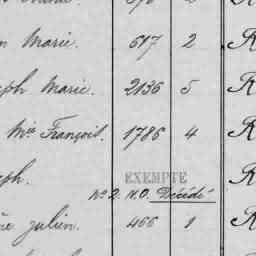 n Marie. 617 2 R
eph Marie. 2136 5 R
Mie François. 1786 4 R
eph. EXEMPTE R
No 2. N.O. Décédé
ie Julien. 466 1 R